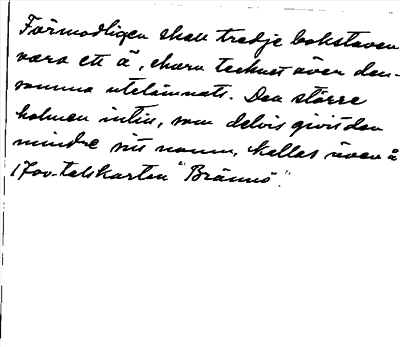 Förmodligen skall tredje bokstaven
vara ett ä, ehuru tecknet över den-
samma utelämnats. Den större
holmen intill, som delvis givit den
mindre sitt namn, kallas även å
1700-talskartan "Brännö".